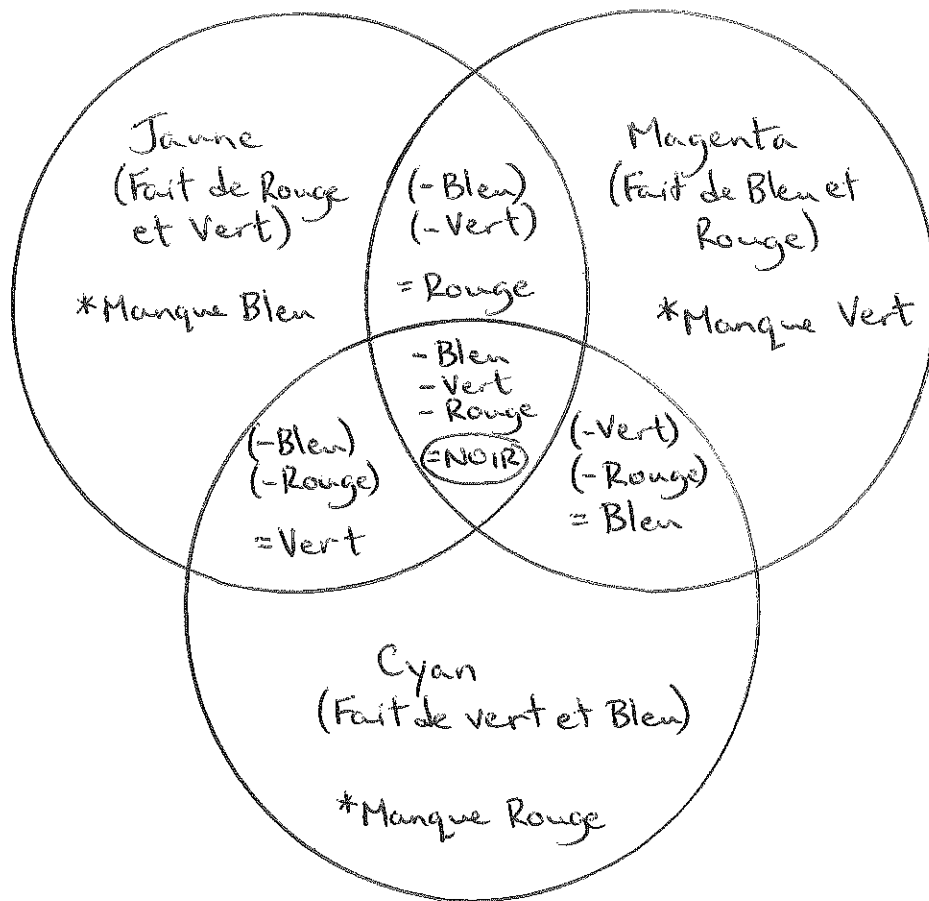 Jaune
(Fait de Rouge
et Vert)
*Manque Bleu
(-Bleu)
(-Vert)
= Rouge
Magenta
(Fait de Bleu et
Rouge)
*Manque Vert
-Bleu
-Vert
-Rouge
=NOIR
(-Bleu)
(-Rouge)
=Vert
(-Vert)
(-Rouge)
= Bleu
Cyan
(Fait de vert et Bleu)
*Manque Rouge